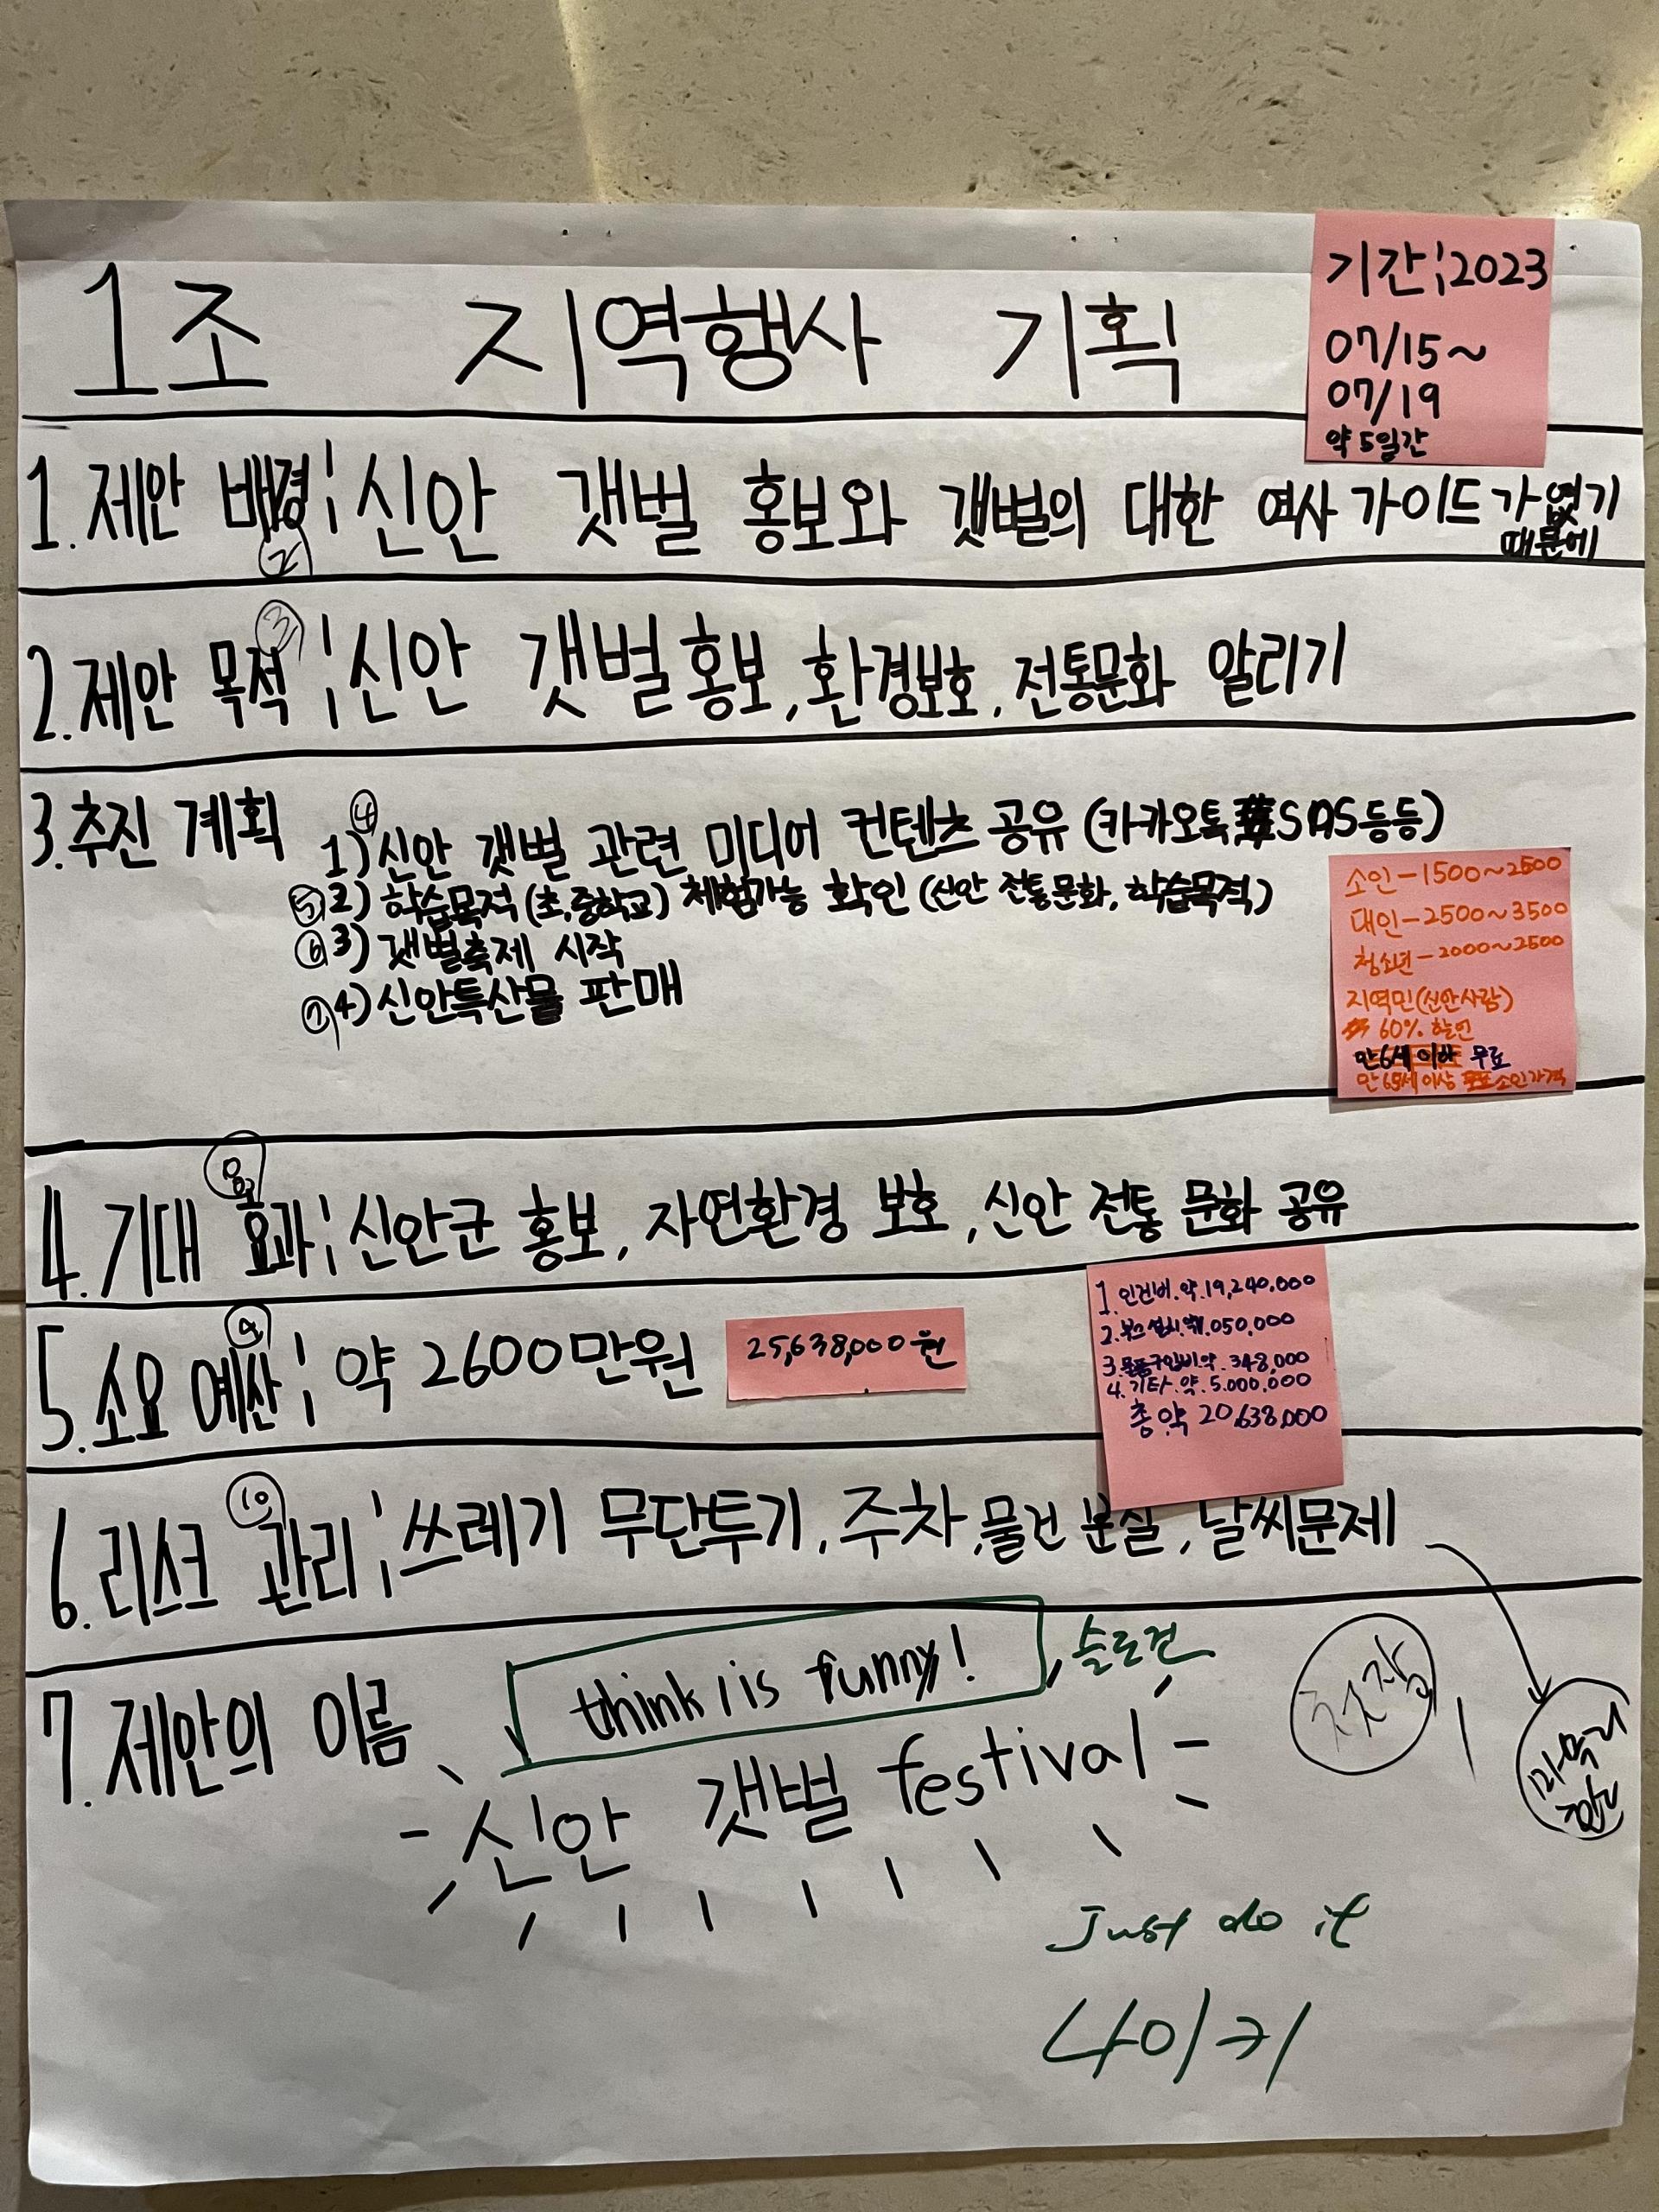 1조 지역행사 기획
기간:2023
07/15~
07/19
약 5일간
1. 제안 배경: 신안 갯벌 홍보와 갯벌의 대한 여사 가이드가 없기
때문에
②
2. 제안 목적: 신안 갯벌 홍보, 환경보호, 전통문화 알리기
③
3. 추진 계획
④ 1) 신안 갯벌 관련 미디어 컨텐츠 공유 (카카오톡 SNS등등)
⑤ 2) 학습목적 (초,중학교) 체험가능 확인 (신안 전통문화, 학습목적)
⑥ 3) 갯벌축제 시작
⑦ 4) 신안특산물 판매
소인-1500~2500
대인-2500~3500
청소년-2000~2500
지역민(신안사람)
60% 할인
만6세 이하 무료
만 65세 이상 소인가격
⑧
4. 기대 효과: 신안군 홍보, 자연환경 보호, 신안 전통 문화 공유
⑨
5. 소요 예산: 약 2600만원
25,638,000원
1. 인건비.약.19,240,000
2. 부스설치.약1.050,000
3. 물품구입비.약.348,000
4. 기타.약.5.000,000
총 약 20,638,000
⑩
6. 리스크 관리: 쓰레기 무단투기, 주차, 물건 분실, 날씨문제
7. 제안의 이름
think iis funny!
슬로건
신안 갯벌 festival
첫장
마무리
Just do it
나이키